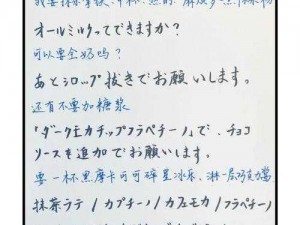 オールミルクってできますか？
可以要全奶吗？
あとシロップ抜きでお願いします。
还有不要加糖浆
「ダークモカチップフラペチーノ」で、チョコ
ソースを追加でお願いします。
要一杯黑摩卡可可碎星冰乐、淋一层巧克力酱
抹茶ラテ / カプチーノ / カフェモカ / フラペチーノ